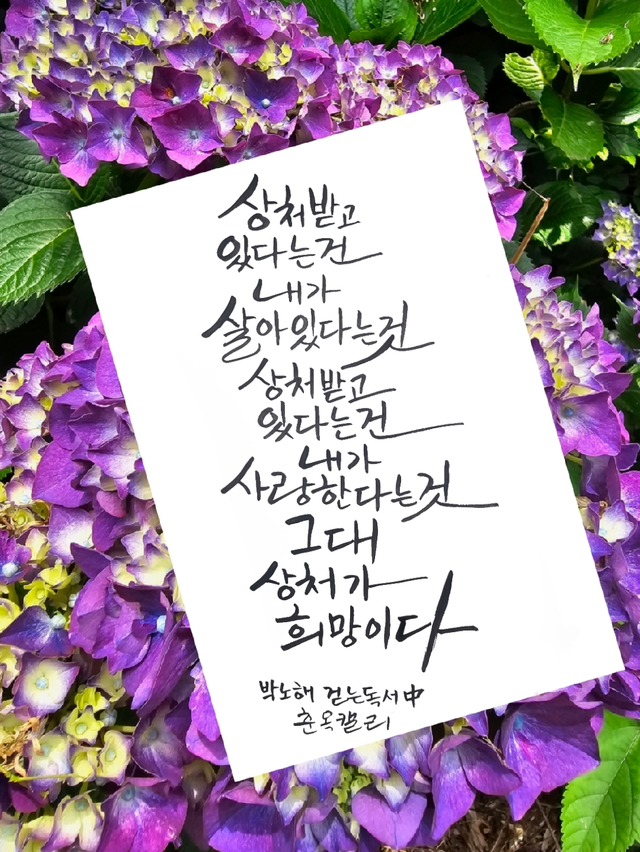 상처받고
있다는건
내가
살아있다는것
상처받고
있다는건
내가
사랑한다는것
그대
상처가
희망이다
박노해 걷는독서 中
춘옥캘리